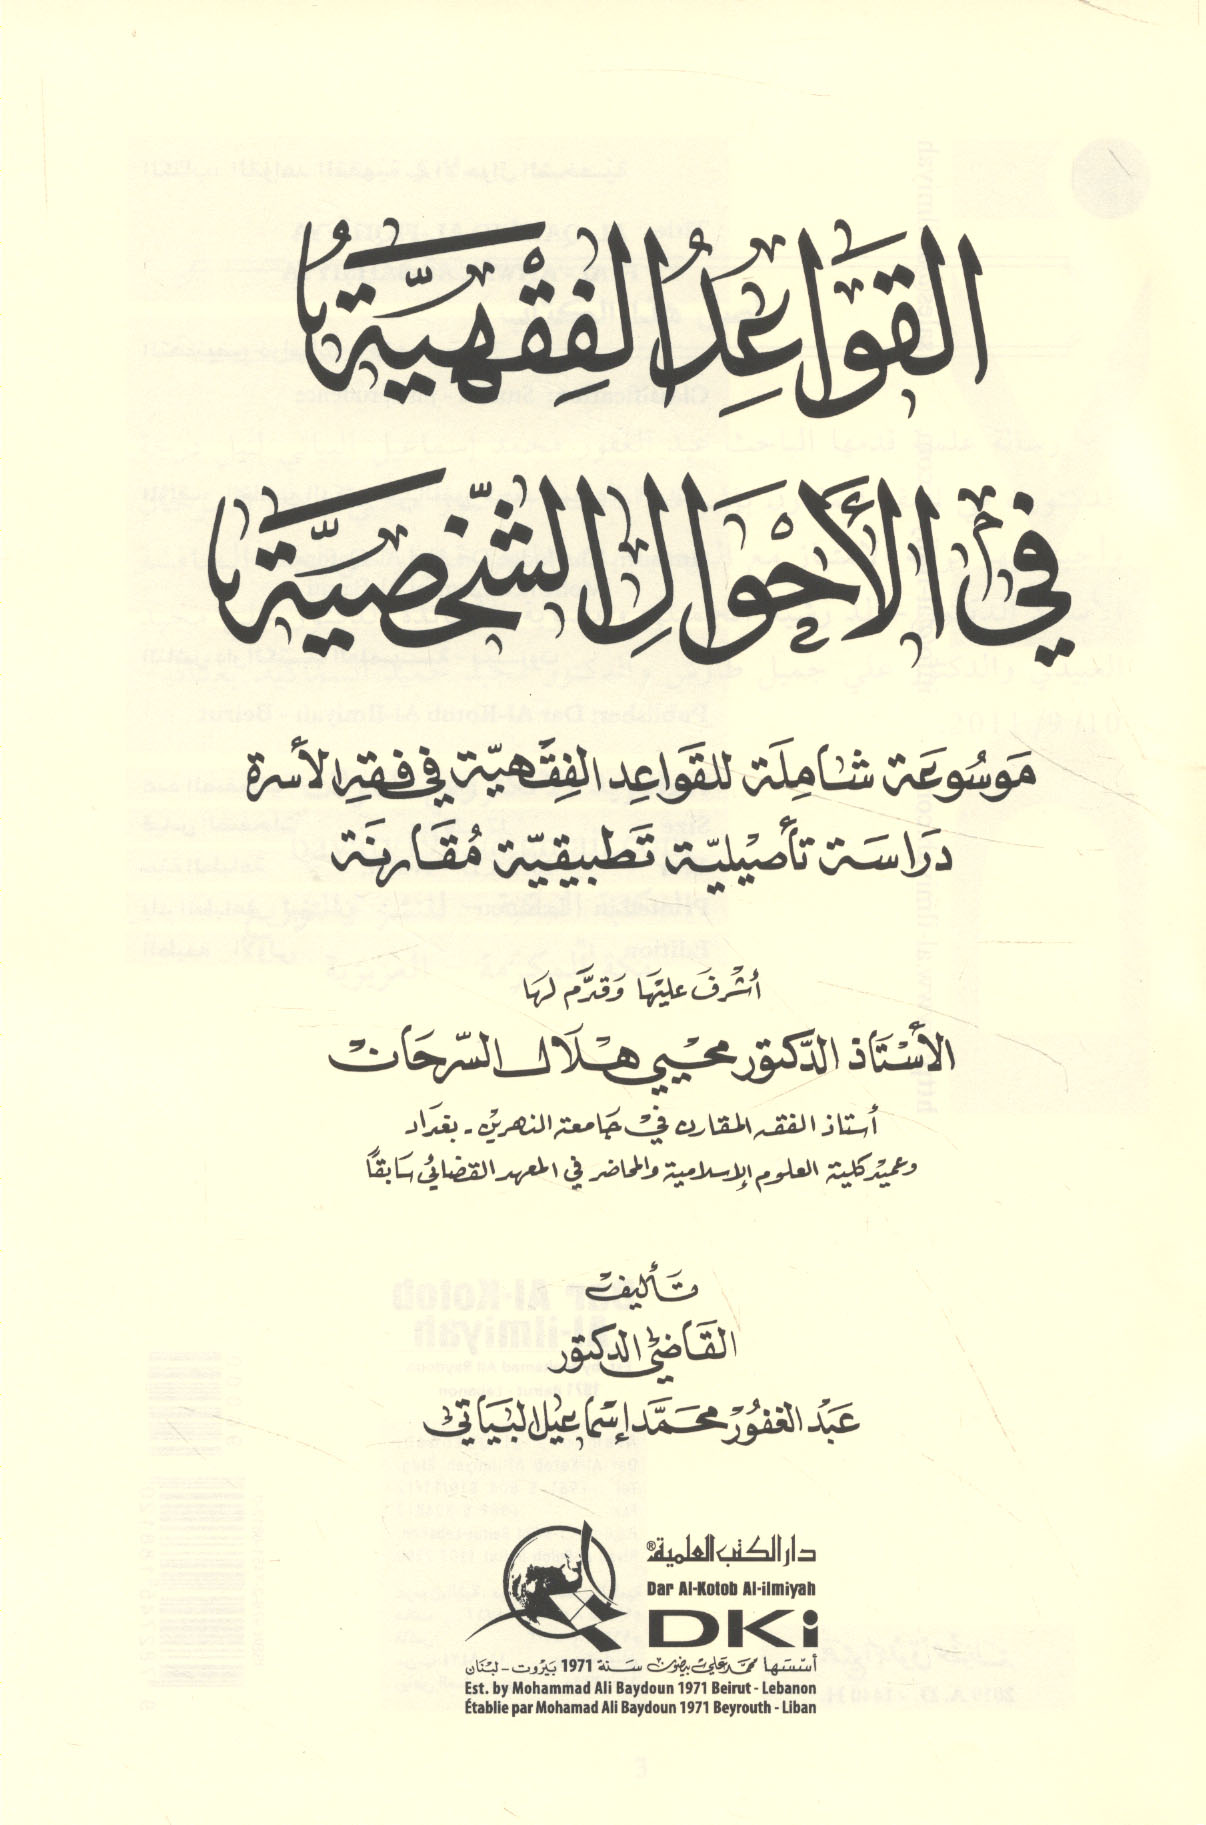 القَوَاعِدُ الفِقْهِيَّةُ
في الأَحْوَالِ الشَّخْصِيَّةِ
مَوسُوعَة شَامِلَة للقَوَاعِد الفِقْهِيّة في فقه الأسرة
دَرَاسَة تأصيْليّة تَطبيقيّة مُقَارنَة
أشْرفَ عليْهَا وَقدَّم لهَا
الأسْتَاذ الدَّكتور محيْي هلَال السّرحَان
أستاذ الفقه المقارن في جَامعة النهريْن - بغدَاد
وعميْد كلية العلوم الإسلامية والمحاضر في المعهد القضَائي سَابقًا
تَأليف
القَاضي الدكتور
عَبْد الغفُوْر محمَّد إسْمَاعيل البَيَاتي
دار الكتب العلمية®
Dar Al-Kotob Al-ilmiyah
DKi
أسّسَها محمّد علي بيضون سَنة 1971 بَيروت - لبْنَان
Est. by Mohammad Ali Baydoun 1971 Beirut - Lebanon
Établie par Mohamad Ali Baydoun 1971 Beyrouth - Liban